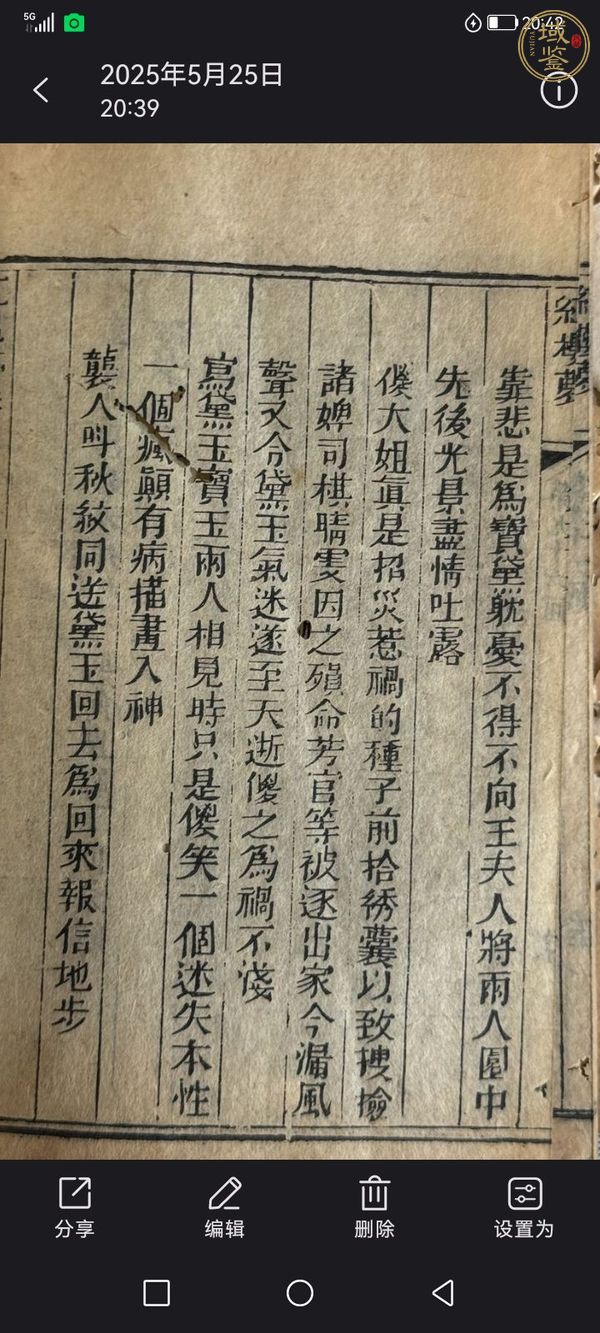 5G
20:42
域鉴
YUJIAN
2025年5月25日
20:39
紅樓夢
靠悲是爲寶黛躭憂不得不向王夫人將兩人園中
先後光景盡情吐露
傻大姐眞是招災惹禍的種子前拾綉囊以致搜撿
諸婢司棋晴雯因之殞命芳官等被逐出家今漏風
聲又令黛玉氣迷遂至夭逝傻之爲禍不淺
寫黛玉寶玉兩人相見時只是傻笑一個迷失本性
一個瘋顚有病描畫入神
襲人叫秋紋同送黛玉回去爲回來報信地步
分享
编辑
删除
设置为